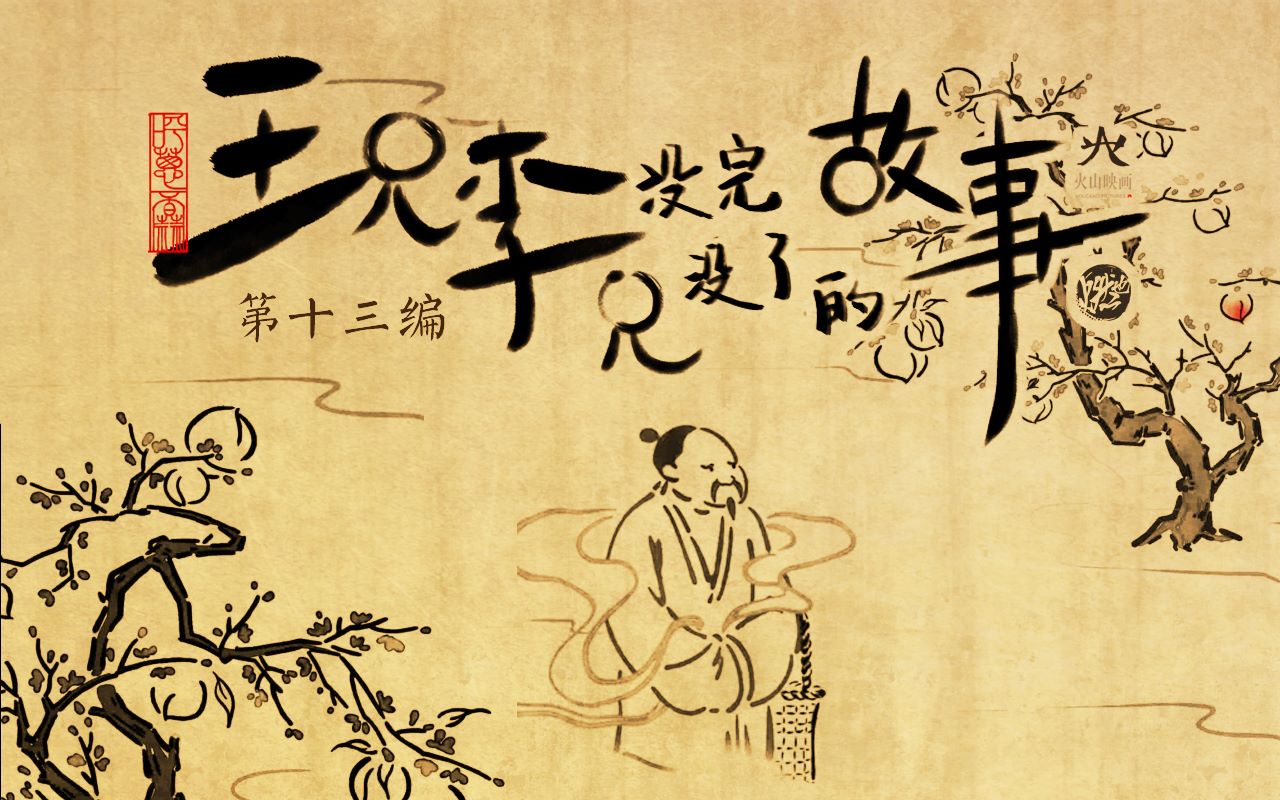 王兄李兄没完没了的故事
第十三编
火山映画